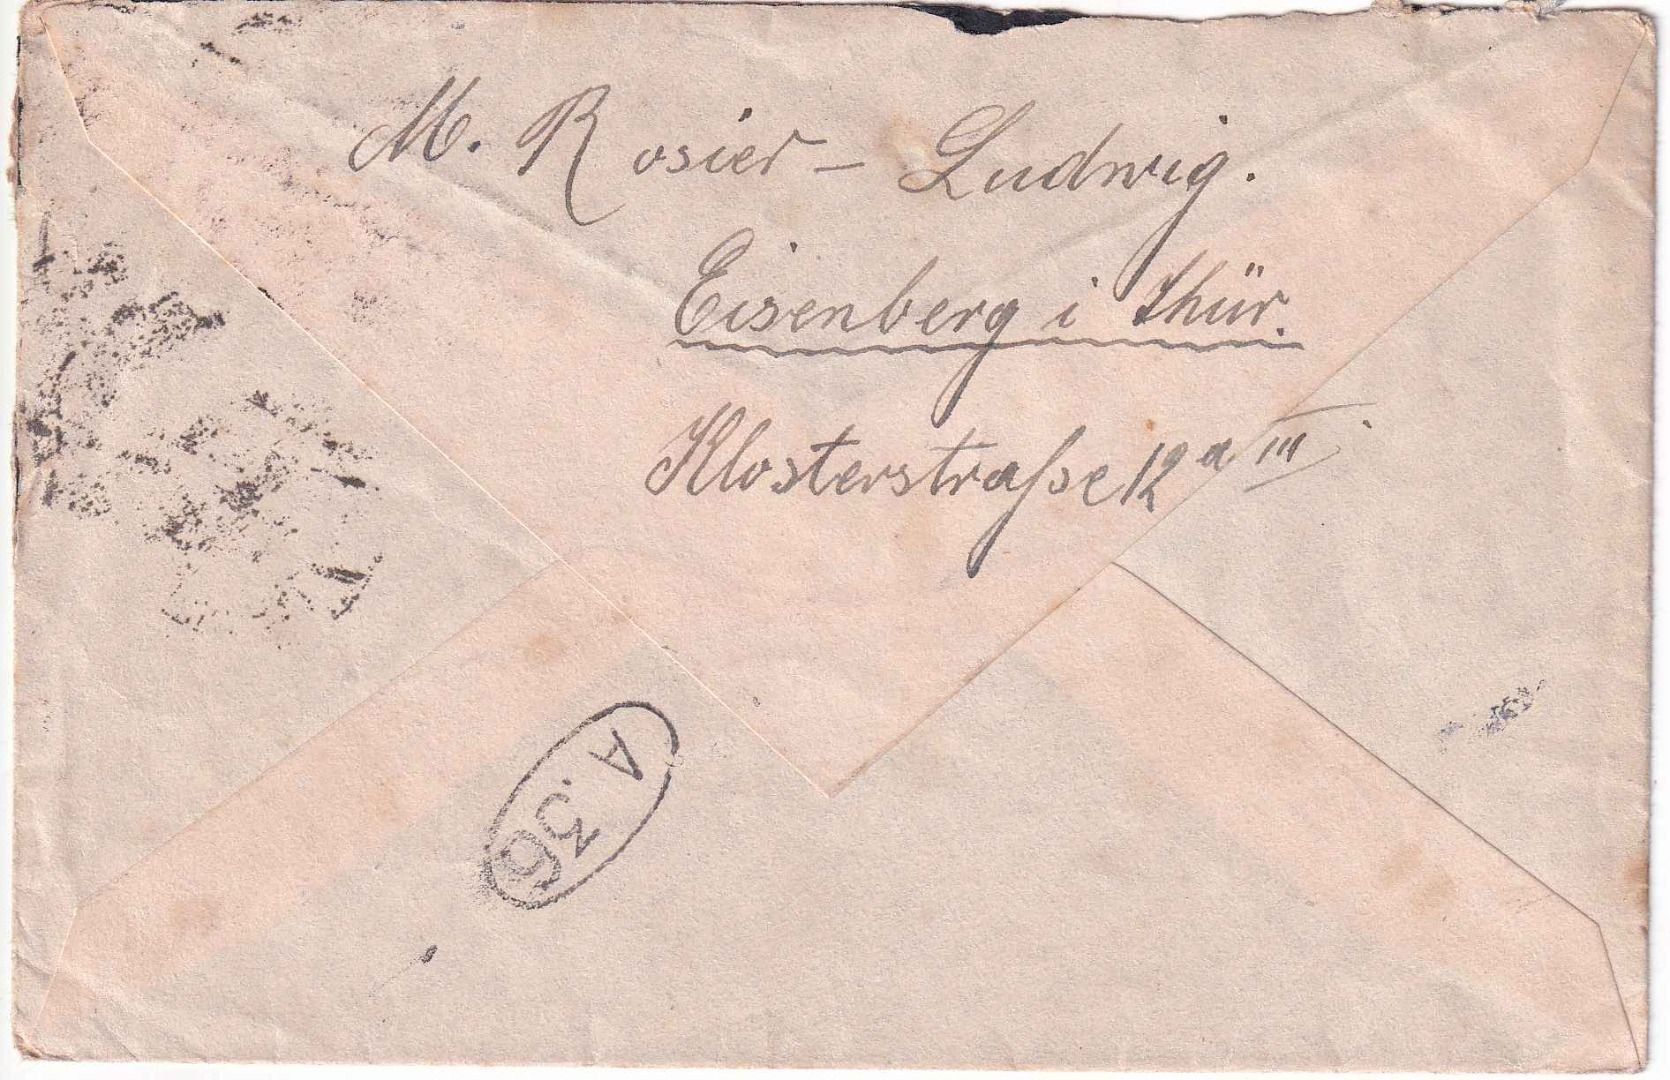 M. Rosier - Ludwig.
Eisenberg i Thür.
Klosterstraße 12 a III
A. 36